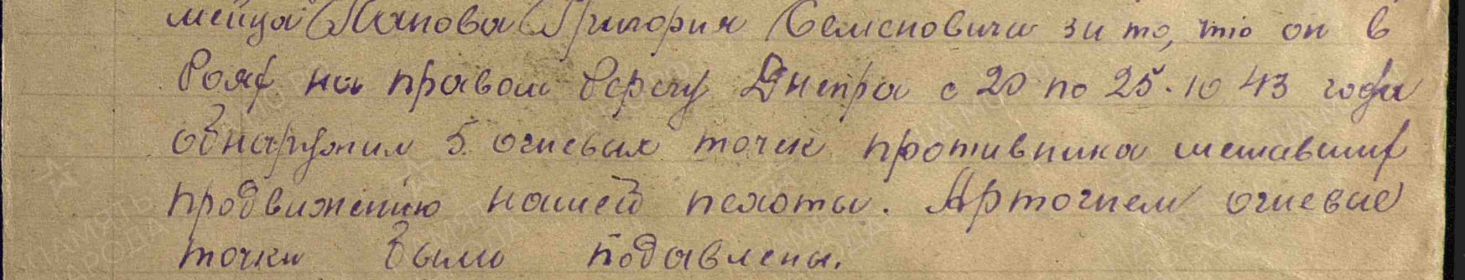 мейца Панова Григория Семеновича за то, что он в
боях на правом берегу Днепра с 20 по 25.10 43 года
обнаружил 5 огневых точек противника мешавших
продвижению нашей пехоты. Артогнем огневые
точки были подавлены.